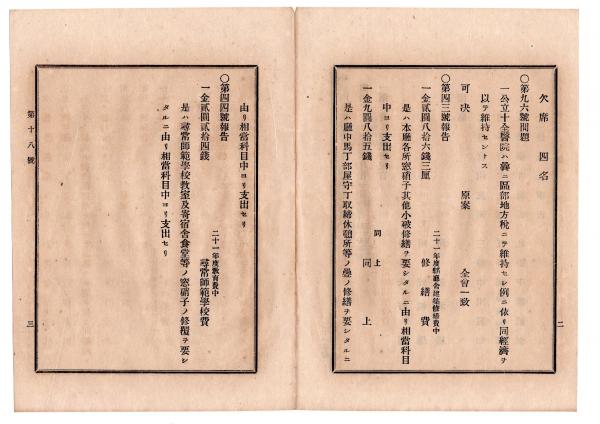 欠席 四名
〇第九六號問題
一公立十全醫院ハ曩ニ區部地方稅ニテ維持セシ例ニ依リ同經濟ヲ
以テ維持セントス
可決 原案 全會一致
〇第四三號報告
二十一年度郡廳舍建築修繕費中
一金貳圓八拾六錢三厘 修繕費
是ハ本廳各所窓硝子其他小破修繕ヲ要シタルニ由リ相當科目
中ヨリ支出セリ
同上
一金九圓八拾五錢 同上
是ハ廳中馬丁部屋守丁取締休憩所等ノ疊ノ修繕ヲ要シタルニ
二
由リ相當科目中ヨリ支出セリ
〇第四四號報告
二十一年度敎育費中
一金貳圓貳拾四錢 尋常師範學校費
是ハ尋常師範學校敎室及寄宿舍食堂等ノ窓硝子ノ修覆ヲ要シ
タルニ由リ相當科目中ヨリ支出セリ
第十八號
三